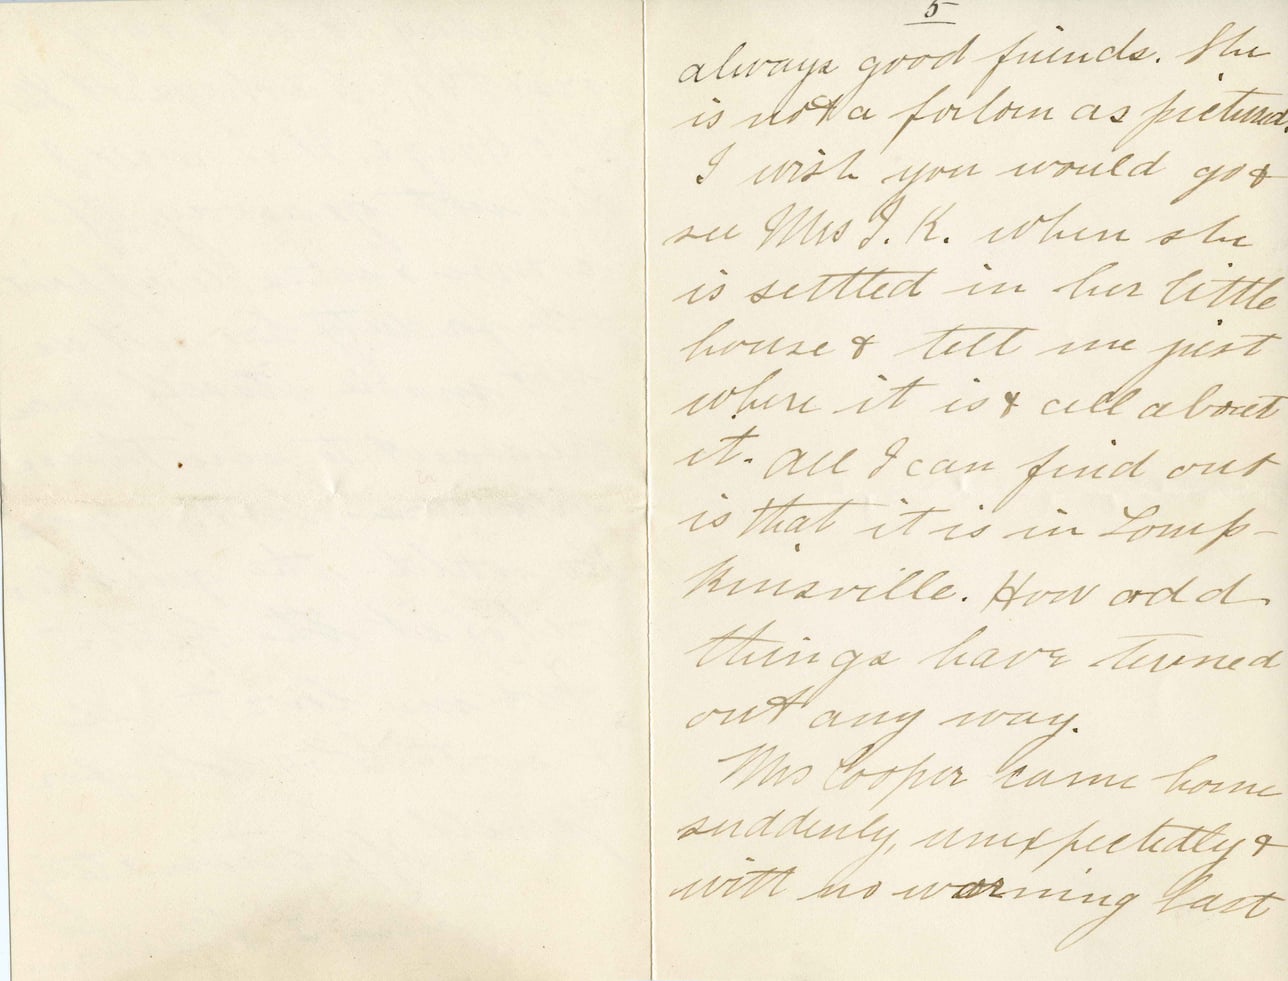 5
always good friends. She
is not a forlorn as pictured.
I wish you would go &
see Mrs J. K. when she
is settled in her little
house & tell me just
where it is & all about
it. All I can find out
is that it is in Tomp-
kinsville. How odd
things have turned
out any way.
Mrs Cooper came home
suddenly, unexpectedly &
with no warning last